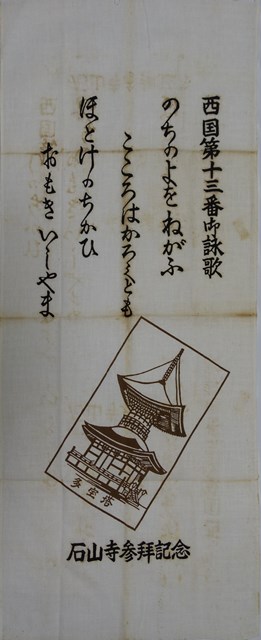 西国第十三番御詠歌
のちのよをねがふ
こころはかろくとも
ほとけのちかひ
おもきいしやま
多宝塔
石山寺参拝記念